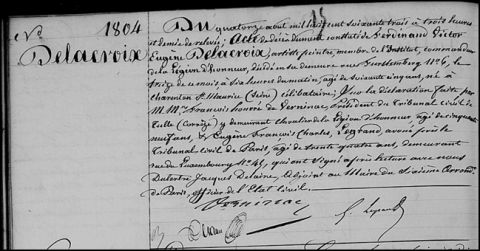 No 1804
Delacroix
Du quatorze aout mil huit cent soixante trois à trois heures
et demie de relevée; Acte de décès dûment constaté de Ferdinand Victor
Eugène Delacroix, artiste peintre, membre de l'Institut, commandeur
de la Légion d'honneur, décédé en sa demeure rue Furstenberg No 6, le
treize de ce mois à six heures du matin, agé de soixante cinq ans, né à
Charenton St Maurice (Seine) célibataire; Sur la déclaration faite par
M.M. François honoré de Verninac, Président du Tribunal civil de
Tulle (Corrèze) y demeurant chevalier de la Légion d'honneur, agé de cinquante
neuf ans, & Eugène François Charles Legrand, avoué près le
Tribunal civil de Paris, agé de trente quatre ans, demeurant
rue du Luxembourg No 45, qui ont signé après lecture avec nous
Jacques adjoint au Maire du Sixième Arrondt
de Paris, officier de l'Etat civil.
Verninac